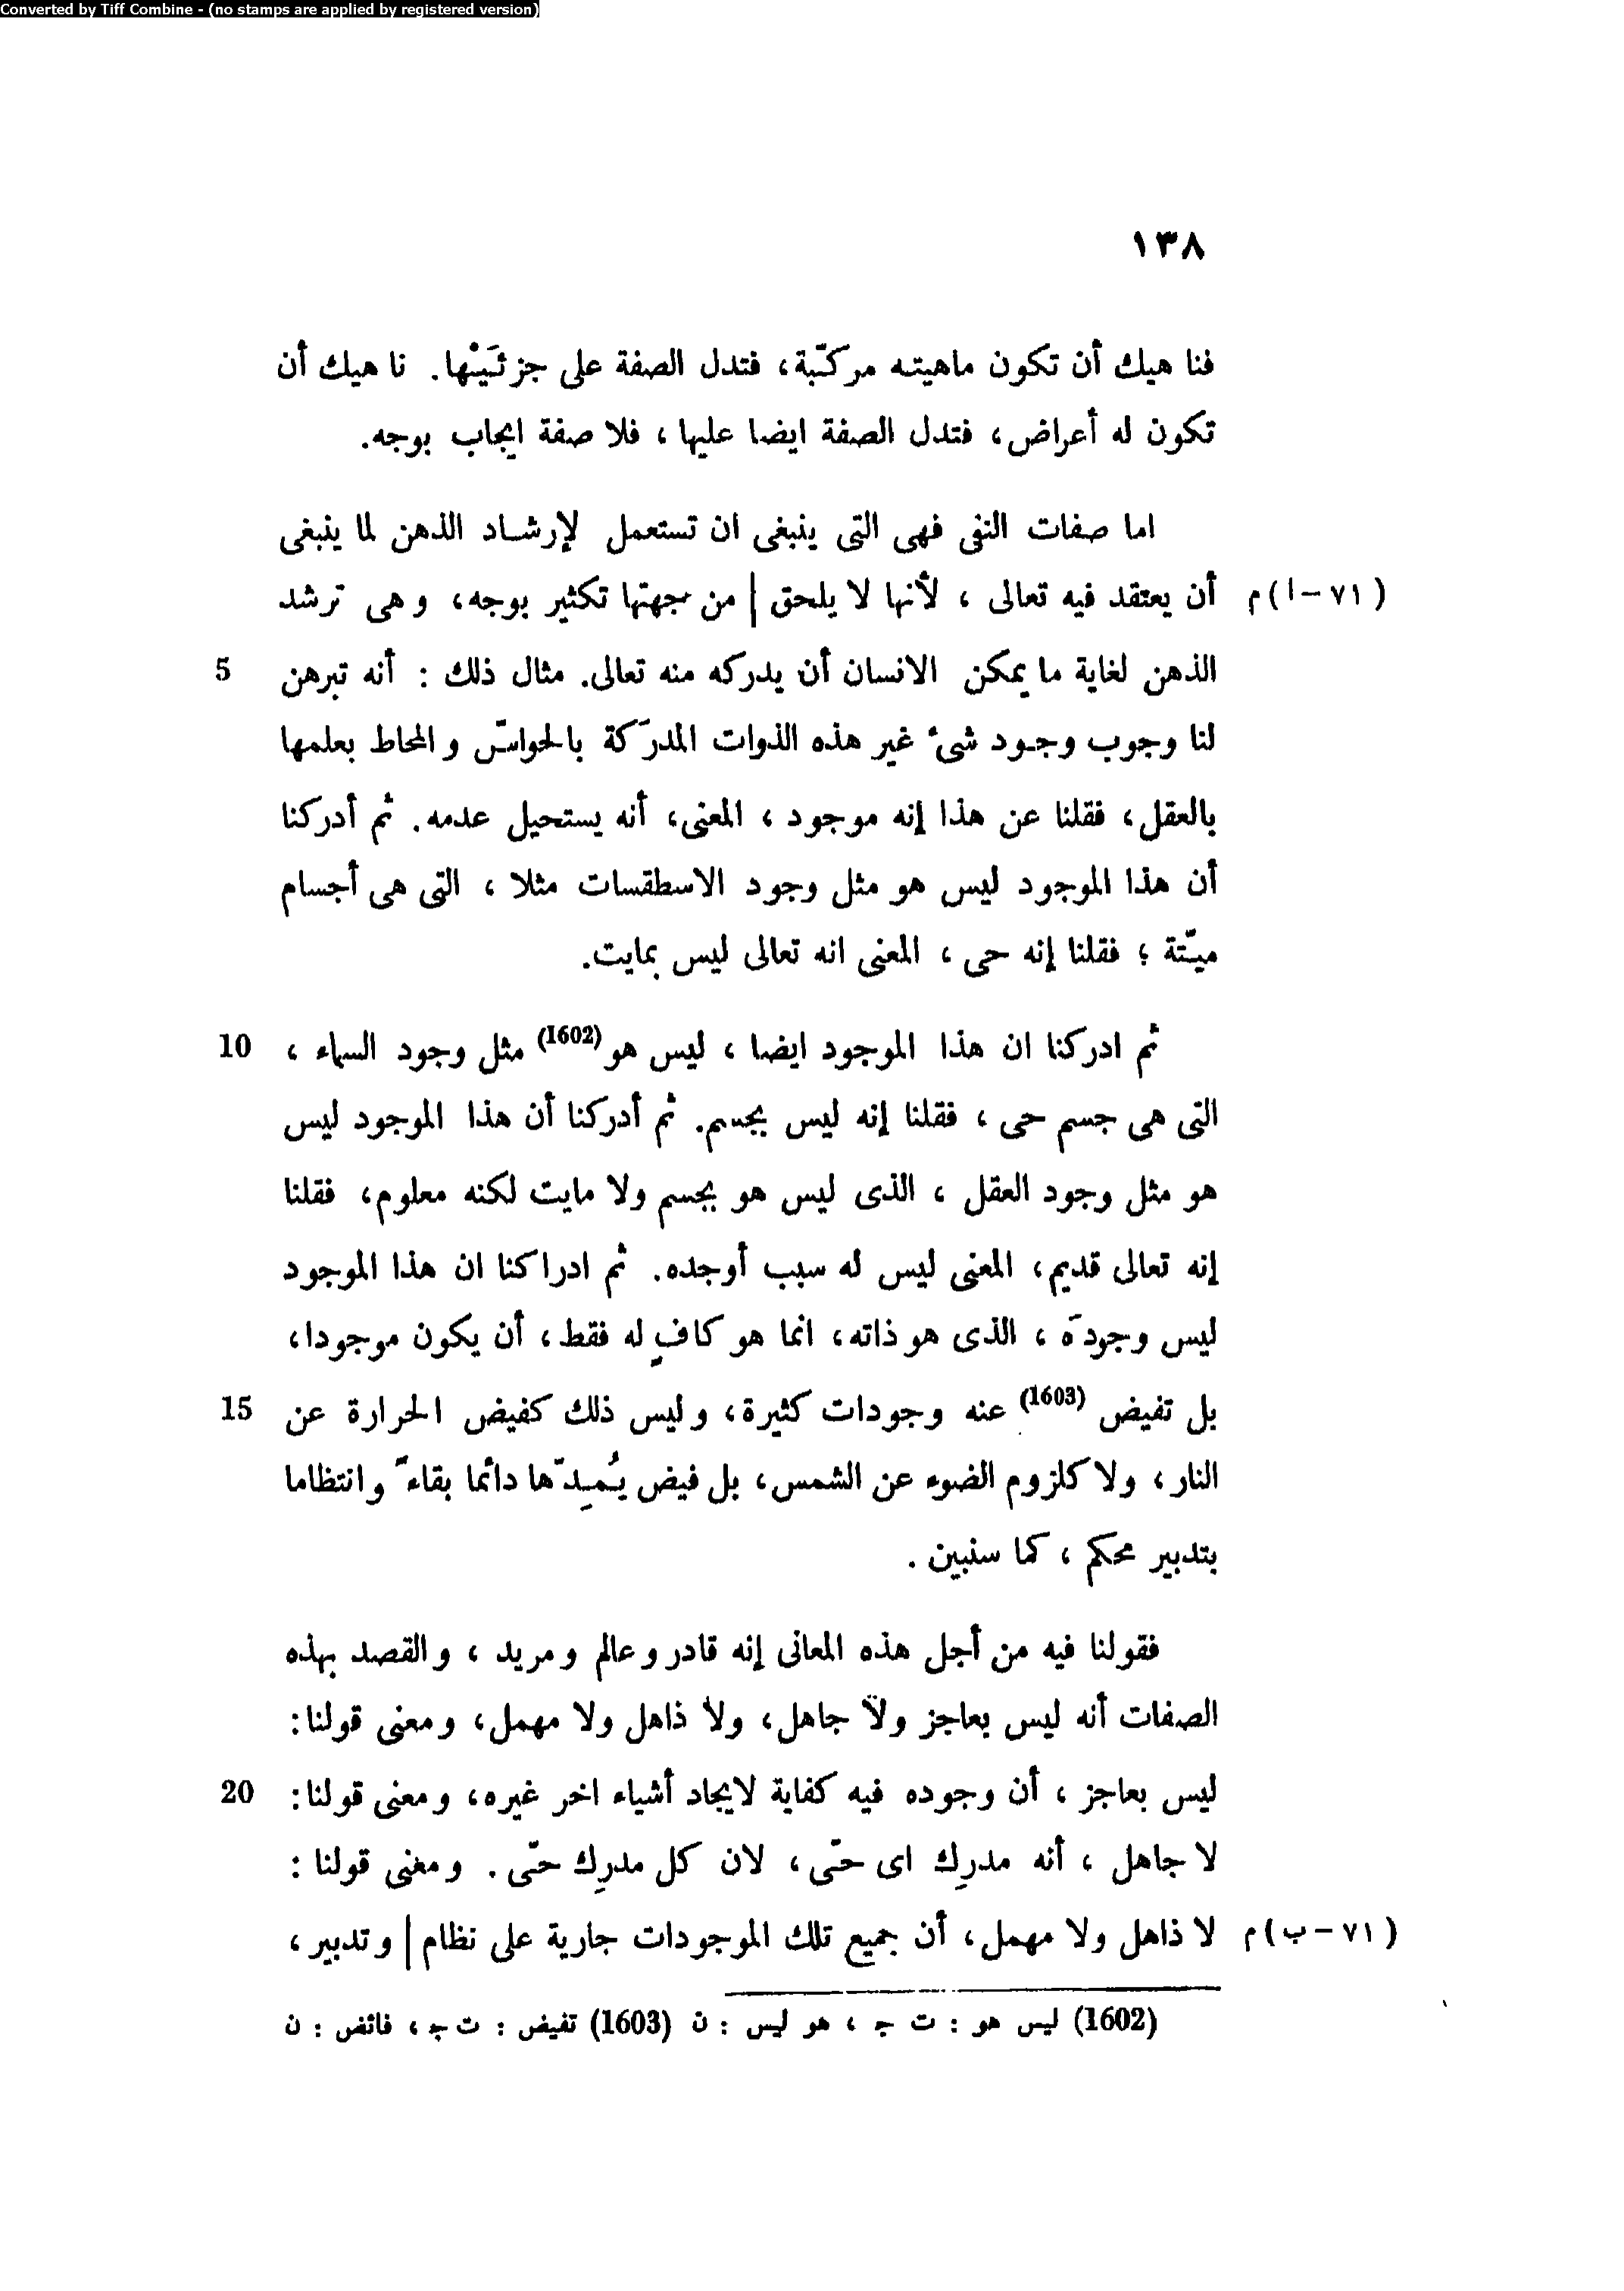 Converted by Tiff Combine - (no stamps are applied by registered version)
١٣٨
فنا هيك أن تكون ماهيته مركّبة، فتدل الصفة على جزئَيْها. نا هيك أن
تكون له أعراض، فتدل الصفة ايضا عليها، فلا صفة ايجاب بوجه.
اما صفات النفى فهى التى ينبغى ان تستعمل لإرشاد الذهن لما ينبغى
(٧١-ا)م أن يعتقد فيه تعالى ، لأنها لا يلحق | من جهتها تكثير بوجه، وهى ترشد
الذهن لغاية ما يمكن الانسان أن يدركه منه تعالى. مثال ذلك : أنه تبرهن 5
لنا وجوب وجود شىء غير هذه الذوات المدرَكة بالحواسّ والمحاط بعلمها
بالعقل، فقلنا عن هذا إنه موجود ، المعنى، أنه يستحيل عدمه. ثم أدركنا
أن هذا الموجود ليس هو مثل وجود الاسطقسات مثلا ، التى هى أجسام
ميّتة ؛ فقلنا إنه حى ، المعنى انه تعالى ليس بمايت.
ثم ادركنا ان هذا الموجود ايضا ، ليس هو (1602) مثل وجود السماء ، 10
التى هى جسم حى ، فقلنا إنه ليس بجسم. ثم أدركنا أن هذا الموجود ليس
هو مثل وجود العقل ، الذى ليس هو بجسم ولا مايت لكنه معلوم، فقلنا
إنه تعالى قديم، المعنى ليس له سبب أوجده. ثم ادراكنا ان هذا الموجود
ليس وجودَه ، الذى هو ذاته، انما هو كافٍ له فقط، أن يكون موجودا،
بل تفيض (1603) عنه وجودات كثيرة، وليس ذلك كفيض الحرارة عن 15
النار، ولا كلزوم الضوء عن الشمس، بل فيض يُمِدّها دائما بقاءً وانتظاما
بتدبير محكم ، كما سنبين .
فقولنا فيه من أجل هذه المعانى إنه قادر وعالم ومريد ، والقصد بهذه
الصفات أنه ليس بعاجز ولا جاهل، ولا ذاهل ولا مهمل، ومعنى قولنا:
ليس بعاجز ، أن وجوده فيه كفاية لايجاد أشياء اخر غيره، ومعنى قولنا: 20
لا جاهل ، أنه مدرِك اى حىّ، لان كل مدرِك حىّ. ومعنى قولنا :
(٧١-ب)م لا ذاهل ولا مهمل، أن جميع تلك الموجودات جارية على نظام | وتدبير ،
(1602) ليس هو : ت ج ، هو ليس : ن (1603) تفيض : ت ج ، فائض : ن